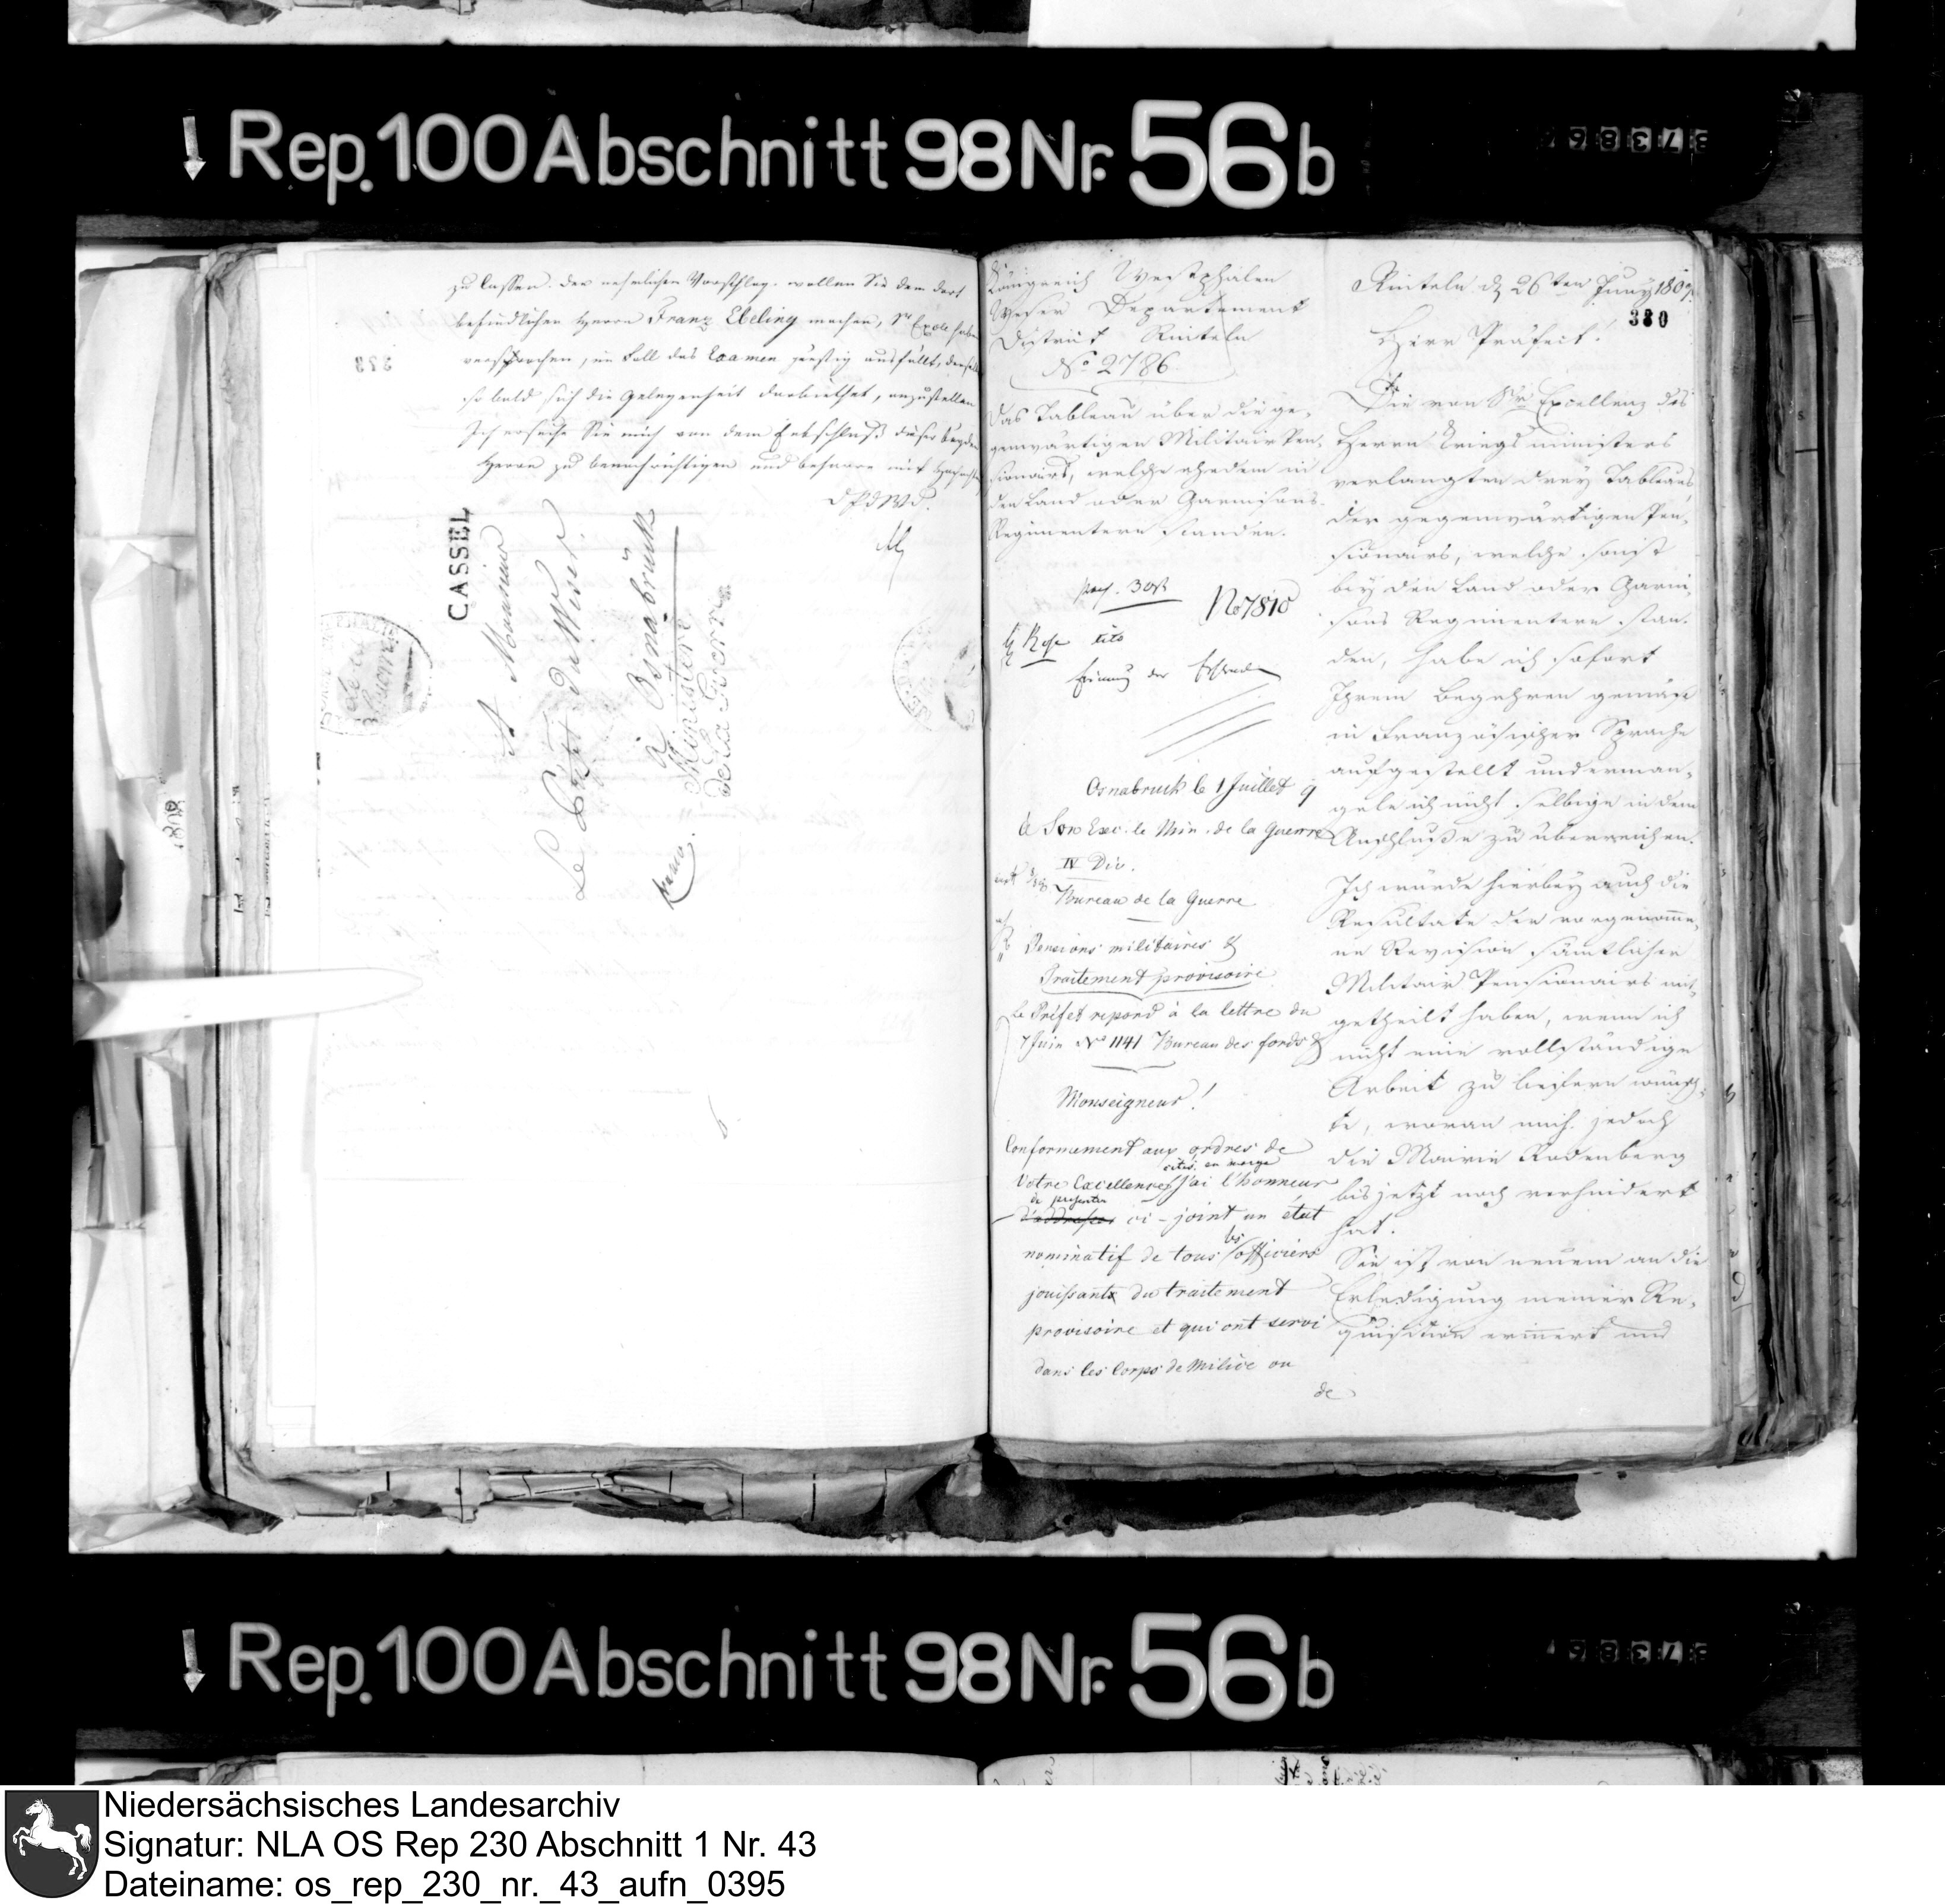 Rep. 100 Abschnitt 98 Nr. 56b
zu lassen. Den nehmlichen Vorschlag wollen Sie dem dort
befindlichen Herrn Franz Ebeling machen, Sr Excle haben
versprochen, im Fall das Examen günstig ausfällt, denselben
so bald sich die Gelegenheit darbiethet, anzustellen
Ich ersuche Sie mich von dem Entschluß dieser beyden
Herrn zu benachrichtigen und beharre mit
CASSEL
A Monsieur
Le Préfet du Weser
à Osnabrück
Ministère
de la Guerre
franco.
Königreich Westphalen
Weser Departement
District Rinteln
No 2786.
Das Tableau über die ge-
genwärtigen Militair Pen-
sionairs, welche ehedem in
den Land oder Garnisons
Regimentern standen.
No 7810
Osnabruck le 1 Juillet 9
à Son Exc. le Min. de la Guerre
IV Div.
Bureau de la Guerre
Pensions militaires &
Traitement provisoire
Le Préfet repond à la lettre du
7 Juin No 1141 Bureau des fonds
Monseigneur!
Conformement aux ordres de
cités en marge
Votre Excellence j'ai l'honneur
de presenter
d'addresser ci-joint un état
nominatif de tous les officiers
jouissants du traitement
provisoire et qui ont servi
dans les Corps de Milice ou
de
Rinteln d 26ten Juny 1809.
380
Herr Präfect!
Die von Sr Excellenz des
Herrn Kriegsministers
verlangten drey Tableaus
der gegenwärtigen Pen-
sionairs, welche sonst
bey den Land oder Garni-
sons Regimentern stan-
den, habe ich sofort
Ihrem Begehren gemäß
in Französischer Sprache
aufgestellt und erman-
gele ich nicht selbige in dem
Anschluße zu überreichen.
Ich würde hierbey auch die
Resultate der vorgenomme-
ne Revision sämtlicher
Militair Pensionairs mit-
getheilt haben, wenn ich
nicht eine vollständige
Arbeit zu liefern wünsch-
te, woran mich jedoch
die Mairie Rodenberg
bis jetzt noch verhindert
hat.
Sie ist von neuem an die
Erledigung meiner Re-
quisition erinnert und
Rep. 100 Abschnitt 98 Nr. 56b
Niedersächsisches Landesarchiv
Signatur: NLA OS Rep 230 Abschnitt 1 Nr. 43
Dateiname: os_rep_230_nr._43_aufn_0395